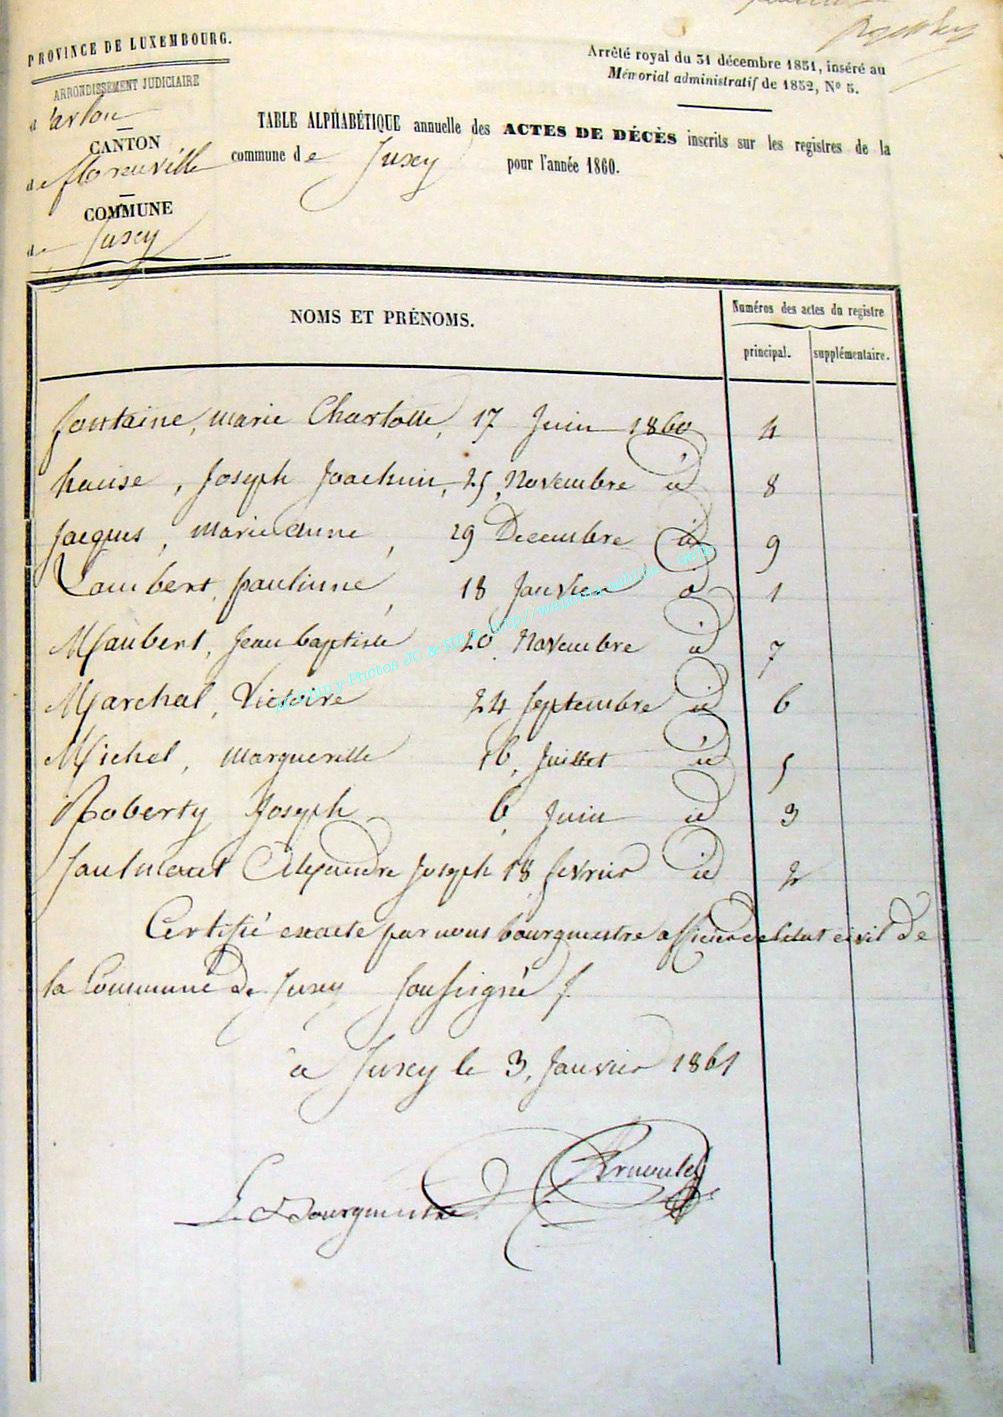 PROVINCE DE LUXEMBOURG.
ARRONDISSEMENT JUDICIAIRE
d'arlon
CANTON
de florenville
COMMUNE
de Jusey
Arrêté royal du 31 décembre 1851, inséré au
Mémorial administratif de 1852, Nº 5.
TABLE ALPHABÉTIQUE annuelle des ACTES DE DÉCÈS inscrits sur les registres de la
commune de Jusey pour l'année 1860.
NOMS ET PRÉNOMS.
Numéros des actes du registre
principal. supplémentaire.
fontaine, marie Charlotte, 17 Juin 1860 4
hause, Joseph Joachim, 25, Novembre id 8
Jacques, marie anne, 29 Decembre id 9
Lambert, paulinne, 18 Janvier id 1
Maubert, Jean baptiste 20 Novembre id 7
Marchal, Victoire 24 Septembre id 6
Michel, Margueritte 16, Juillet id 5
Roberty Joseph 6 Juin id 3
Alexandre Joseph 18 fevrier id 2
Certifié exacte par nous bourgmestre officier de l'état civil De
la Commune De Jusey Soussigné
à Jusey le 3, Janvier 1861
Le Bourgmestre